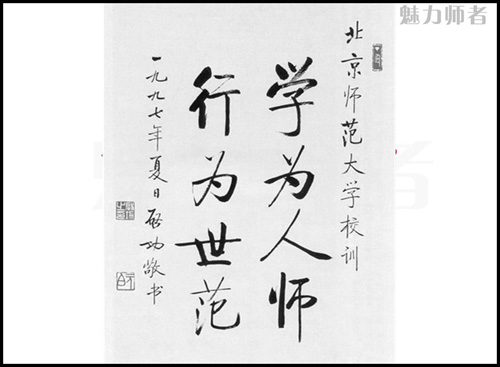 魅力师者
北京师范大学校训
学为人师
行为世范
一九九七年夏日启功敬书